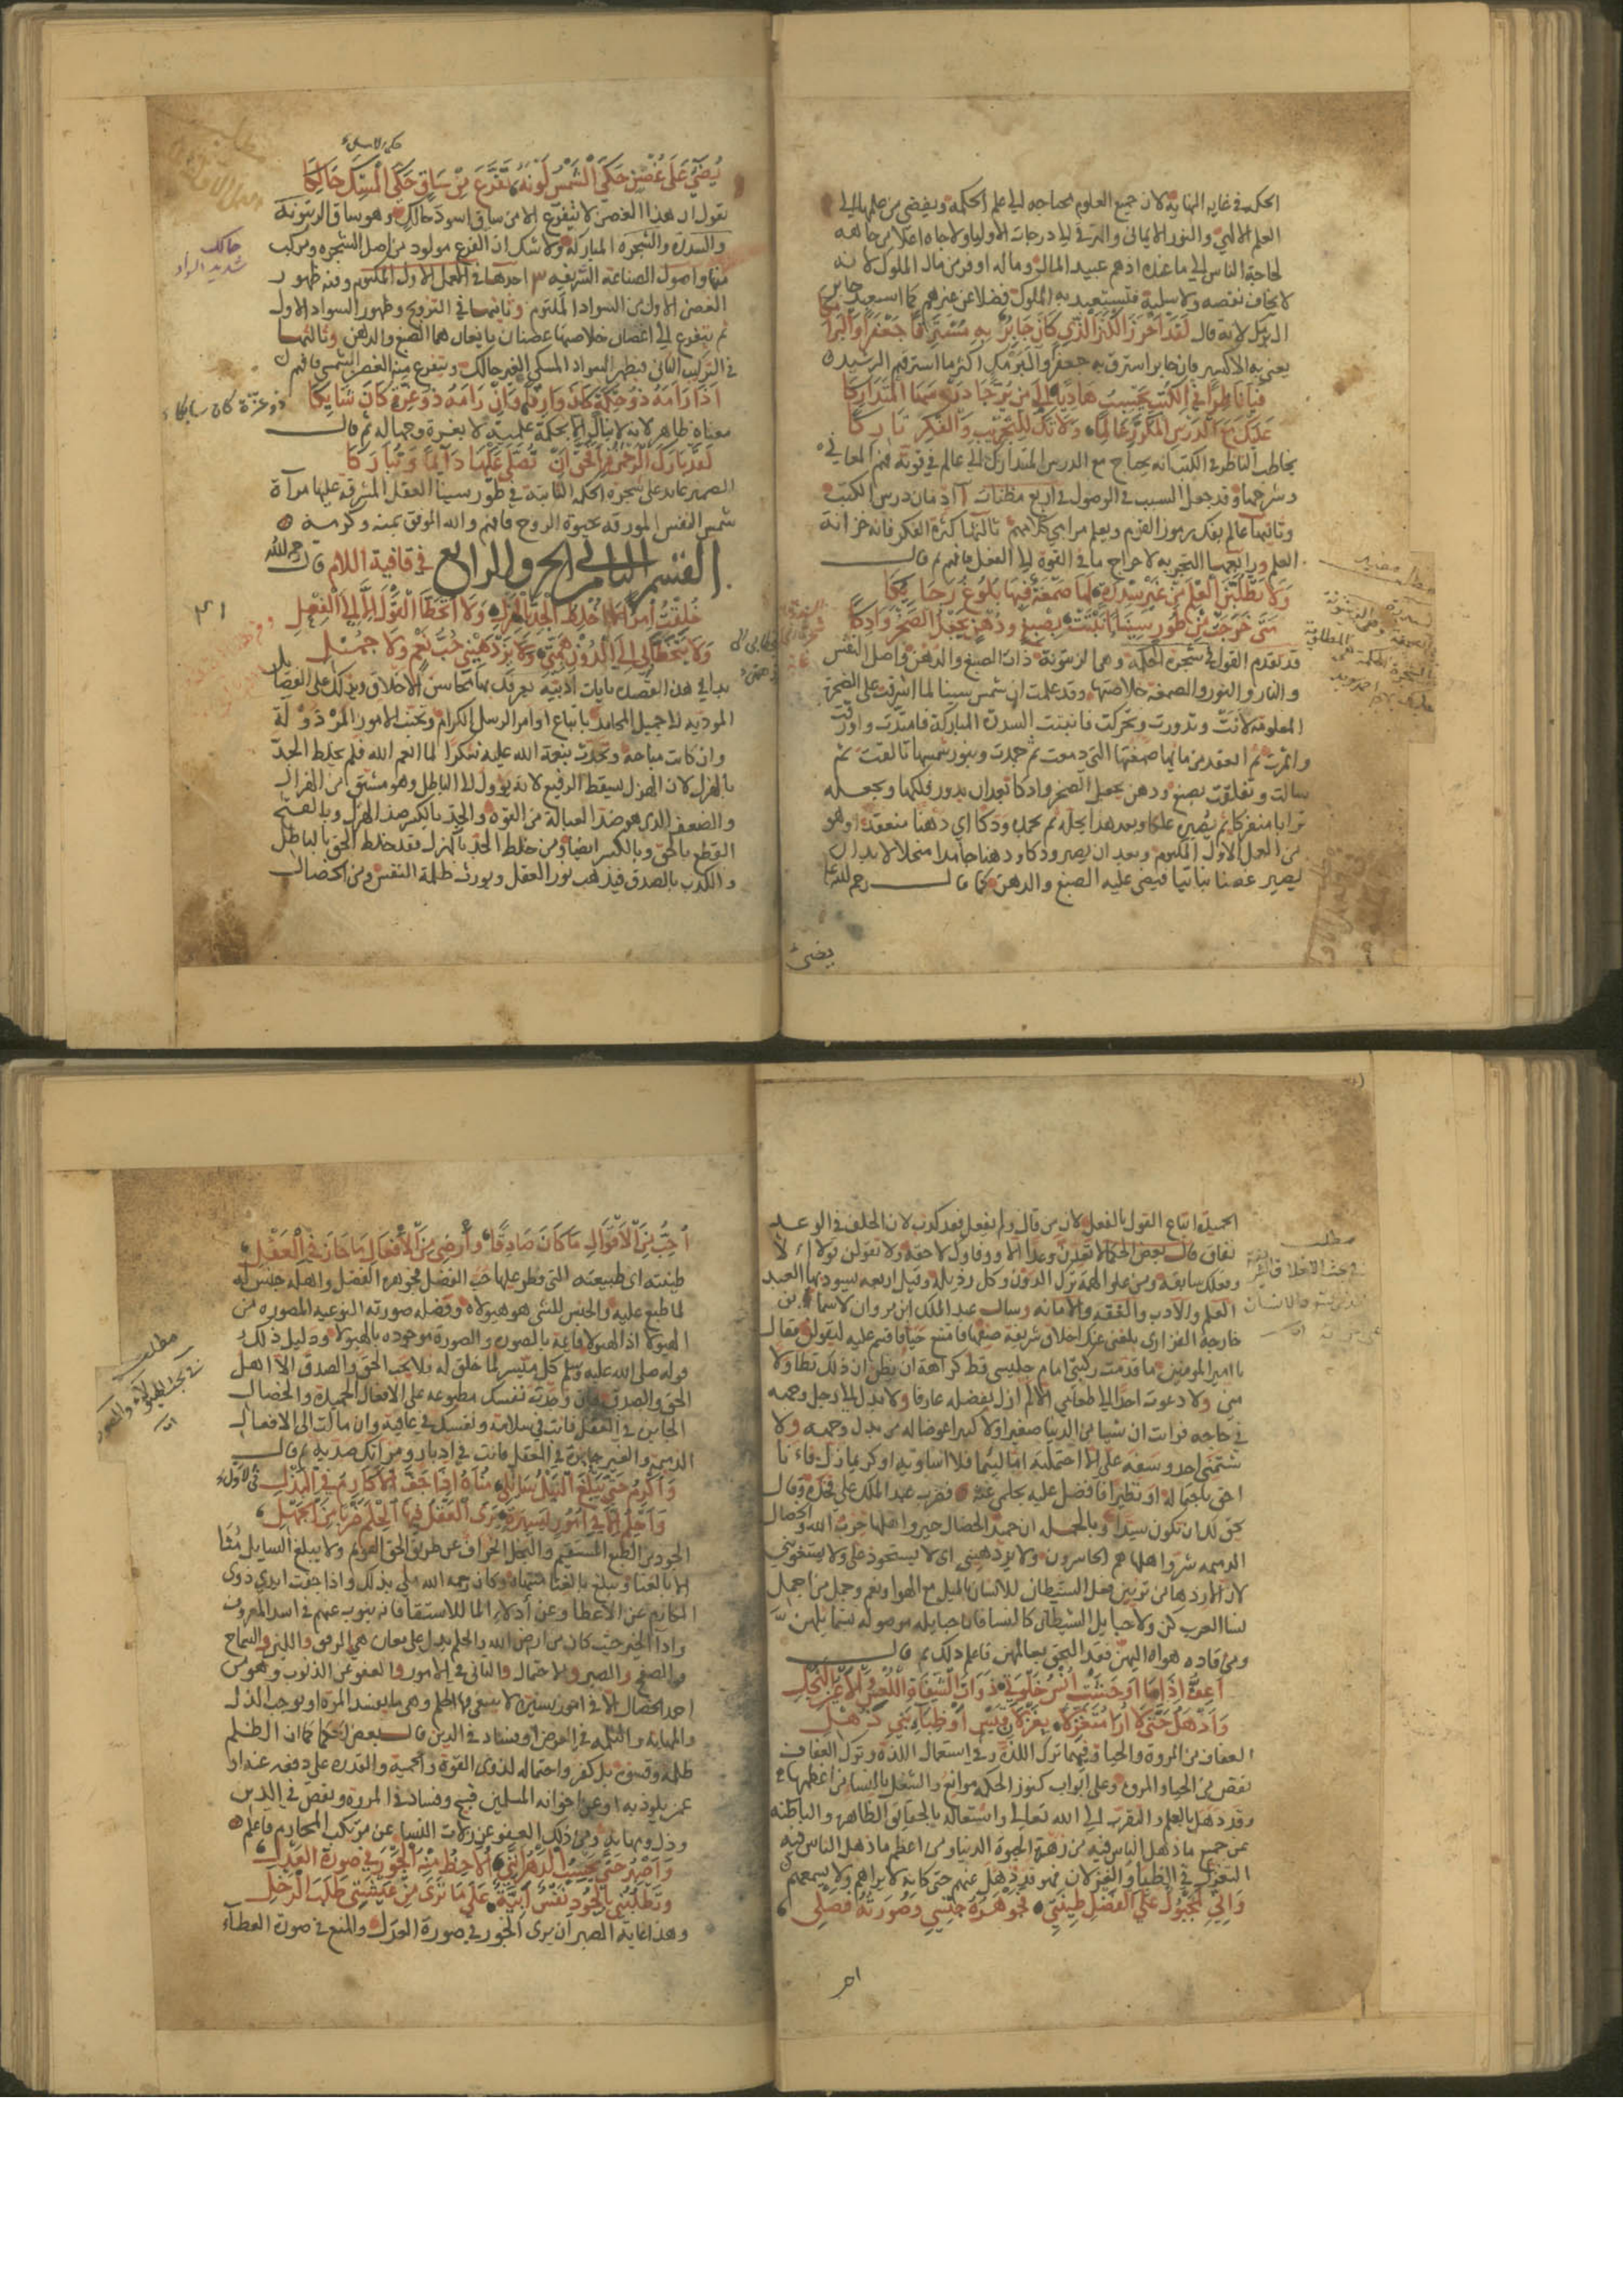 الحكمة في غاية النهاية لان جميع العلوم محتاجه الي علم الحكمة ويفضي من علمها الي
العلم الالهي والنور الايماني والترقي الي درجات الاوليا ولا جاه اعلا من جاهه
لحاجة الناس الي ما عنده اذ هم عبيد المال وماله اوفر من مال الملوك لانه
لا يخاف نقصه ولا سلبه فتستعبد به الملوك فضلا عن غيرهم كما استعبد جابر
لانه قال لقد احرز الكنز الذي كان جابر به مسترقا جعفرا والبرامكا
يعني به الاكسير فان جابر استرق به جعفر والبرمكي اكثر ما استرقهم الرشيد
فيا ناظرا في الكتب يحسب هاديا الي من يرجا درسها المتداركا
عليك مع الدرس المكرر عالما ولا تك للتجريب والفكر تاركا
يخاطب الناظر في الكتب انه يحتاج مع الدرس المتدارك الي عالم في قوته فهم المعاني
وشرحها وقد جعل السبب في الوصول في اربع مظنات ادمان درس الكتب
وثانيها عالم يفك رموز القوم ويعلم مرامي كلامهم ثالثها كثرة الفكر فانه خزانة
العلم ورابعها التجربه لاخراج ما في القوة الي الفعل فافهم ثم قال
ولا تطلبن العلم من غير سدرة لها صمغة فيها بلوغ رجايكا
متي خرجت من طور سينا انبتت بصبغ ودهن يجعل الصخر وادكا
قد تقدم القول في شجرة الحكمة وهما الزيتونة ذات الصبغ والدهن في اصل النفس
والنار والنور والصمغة خلاصتها وقد علمت ان شمس سينا لما اشرقت علي الصخرة
المعلومة لانت وتدورت وتحركت فانبتت السدرة المباركة فامتدت واورقت
واثمرت ثم انعقد من مايها صمغتها التي دمعت ثم جمدت وبنور شمسها تالقت ثم
سالت وتعلقت بصبغ ودهن يجعل الصخر وادكا بعد ان يدور فلكها ويجعله
ترابا منفركا ثم يصير علكا وبعد هذا يحله ثم يجمد ودكا اي دهنا منعقدا وهو
من العمل الاول المكتوم وبعد ان يصير ودكا ودهنا جامدا منحلا لا بد ان
يصير غصنا نباتيا فيضي عليه الصبغ والدهن كما قال رحمه الله
يضيء
يضيء علي غصن حكي الشمس لونه تفرع من ساق حكي المسك حالكا
يقول ان هذا الغصن لا يتفرع الا من ساق اسود حالك وهو ساق الزيتونة
والسدرة والشجرة المباركة ولا شك ان الفرع مولود من اصل الشجرة ومركب
منها واصول الصناعة الشريفه ٣ احدها في العمل الاول المكتوم ومنه ظهور
الغصن الاول من السواد الملتوم وثانيها في التزويج وظهور السواد الاول
ثم يتفرع الي اغصان خلاصتها غصنان يانعان هما الصبغ والدهن وثالثها
في التركيب الثاني فيظهر السواد المسكي الغير حالك ويتفرع منه الغصن الشمسي فافهم
اذا رامه ذو حكمة كان واركا وان رامه ذو غرة كان شايكا
ذو عزة كان سايكا
حالك
شديد السواد
معناه ظاهر لانه لا ينال الا بحكمة علمية لا بغرة وجهالة ثم قال
لقد بارك الرحمن فاحق ان تصلي عليها دايما وتباركا
الضمير عايد علي شجرة الحكمة النابتة في طور سينا العقل المشرقه عليها مراة
شمس النفس المورقه بحيوة الروح فافهم والله الموفق بمنه وكرمه
القسم الثاني الحرف الرابع في قافية اللام قال رحمه الله
خلقت امرا لا اخلط الجد بالهزل ولا اتخطا القول الا الي الفعل
ولا يتخطاني الي الدون همتي ولا يزدهيني حب نعم ولا جمل
بدا في هذا الفصل بابيات ادبية تعرفك بها محاسن الاخلاق وبذلك علي الفضايل
المودية الي جميل المحامد باتباع اوامر الرسل الكرام وتجنب الامور المرذولة
وان كانت مباحة وتحدث بنعمة الله عليه شكرا لما انعم الله فلم يخلط الجد
بالهزل لان الهزل يسقط الرفيع لانه يؤول الي الباطل وهو مشتق من الهزال
والضعف الذي هو ضد العبالة من القوة والجد بالكسر ضد الهزل وبالفتح
القطع بالحق وبالكسر ايضا ومن خلط الجد بالهزل فقد خلط الحق بالباطل
والكذب بالصدق فيذهب نور العقل ويورث ظلمة النفس ومن الخصال
مطلب
الجميلة اتباع القول بالفعل لان من قال ولم يفعل فقد كذب لان الخلف في الوعد
نفاق قال بعض الحكما لا تعدن وعدا الا ووفاوك لاحقه ولا تقولن قولا الا
وفعلك سابقه ومن علو الهمة ترك الدون وكل رذيلة وقيل اربعة يسود بها العبد
العلم والادب والفقه والامانة وسال عبد الملك ابن مروان لاسماء بن
خارجة الفزاري بلغني عنك اخلاق شريفة صفها فامتنع حيا فاقسم عليه ليقولن فقال
يا امير المومنين ما قدمت ركبتي امام جليسي قط كراهة ان يظن ان ذلك تطاولا
مني ولا دعوت احدا الي طعامي الا لم ازل بفضله عارفا ولا بذل الي رجل وجهه
في حاجة فرايت ان شيا من الدنيا صغيرا ولا كبيرا عوضا له من بذل وجهه ولا
شتمني احد وسفه علي الا احتملته اما لئيما فلا اساويه او كريما زل فانا
احق باحتماله او نظيرا فافضل عليه بحلمي عنه فضرب عبد الملك علي فخذه وقال
يحق لك ان تكون سيدا وبالجملة ان حميد الخصال خير واهلها حزب الله والخصال
الذميمة شر واهلها هم الخاسرون ولا يزدهيني اي لا يستحوذ علي ولا يستغويني
لان الازدها من تزيين فعل الشيطان للانسان بالميل مع الهوا ونعم وجمل من اجمل
نسا العرب كن ولا حبايل الشيطان كالنسا فان حبايله موصولة
ومن قاده هواه اليهن فقد التحق بعالمهن فاعلم ذلك ثم قال
اعف اذا ما اوحشت انس خلوتي ذوات الشفاه اللعس والاعين النجل
واذهل حتي لا ارا متغزلا بغزلان قيس او ظباء بني ذهل
العفاف من المروة والحيا فيهما ترك اللذة وفي استعمال اللذة وترك العفاف
نقص من الحيا والمروة وعلي ابواب كنوز الحكمة موانع والشغل بالنسا من اعظمها
وقد ذهل بالعلم والتقرب الي الله تعالي واشتغاله بالحقايق الظاهرة والباطنه
عن جميع ما ذهل الناس فيه من زهرة الحيوة الدنيا ومن اعظم ما ذهل الناس فيه
التغزل في الظبا والغزلان فهو قد ذهل عنهم حتي كانه لا يراهم ولا يسمعهم
واني لمجبول علي الفضل طينتي فجوهره جنسي وصورته فصلي
احب
احب من الاقوال ما كان صادقا وارضي من الافعال ما جاز في العقل
طينته اي طبيعته التي فطر عليها حب الفضل فجوهره الفضل واهله جنس له
لما طبع عليه والجنس للشي هو هيولاه وفصله صورته النوعية المصورة من
الهيولا اذ الهيولا قايمة بالصورة والصورة موجوده بالهيولا ودليل ذلك
قوله صلي الله عليه وسلم كل ميسر لما خلق له فلا يحب الحق والصدق الا اهل
الحق والصدق فان وجدت نفسك مطبوعه علي الافعال الحميدة والخصال
الجايزة في العقل فانت في سلامة ونفسك في عافية وان مالت الي الافعال
الذميمة والغير جايزة في العقل فانت في ادبار ومزاجك صدية ثم قال
واكرم حتي يبلغ النيل سايلي مناه اذا جفت الاكارم في البذل
واحلم الا في امور يسيرة يري العقل فيها الحلم ضربا من الجهل
الجود من الطبع المستقيم والبخل انحراف عن طريق الحق القويم ولا يبلغ السايل مناه
الا بالغنا ويبلغ بالغنا مناه وكان رحمه الله ملي بذلك واذا جفت ايدي ذوي
المكارم عن الاعطا وعن ادلاء الما للاستقا فانه ينوب عنهم في اسدا المعروف
وادا الخير حيث كان من ارض الله والحلم يدل علي معان هي الرفق واللين والسماح
والصفح والصبر والاحتمال والتاني في الامور والعفو عن الذنوب وهو من
احد الخصال الا في امور يسيرة لا ينبغي لها الحلم وهي ما يفسد المروة او يوجب الذل
والمهانة والثلمة في العرض او فساد في الدين قال بعض الحكما كان الظلم
ظلمة وفسق بل كفر واحتماله لذوي القوة والحمية والقدرة علي دفعه عند او
عمن يلوذ به او عن اخوانه المسلمين قبح وفساد في المروة ونقص في الدين
وذل ومهانة ومن ذلك العفو عن زلات النسا عن مرتكب المحارم فاعلم
واصبر حتي يحسب الدهر انني الاحظ منه الجور في صورة العدل
وتطلبني بالجود نفس ابية علي ما تري من عيشتي ظلها الرخل
وهذا غاية الصبر ان يري الجور في صورة العدل والمنع في صورة العطاء
مطلب